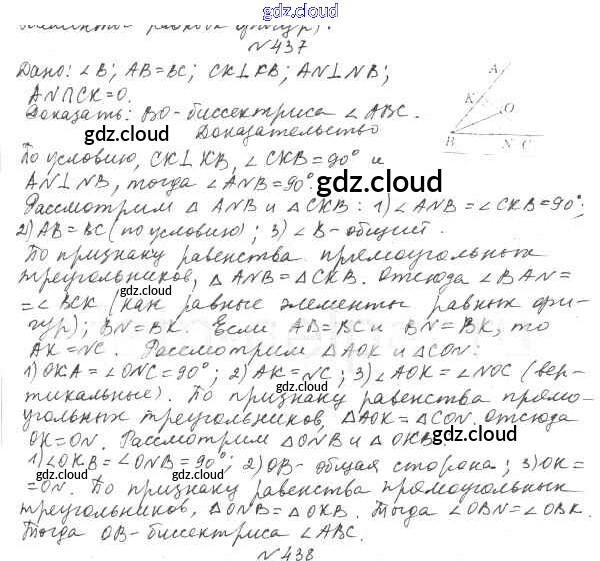 gdz.cloud
элементов равных фигур).
N 437
Дано: ∠B; AB=BC; CK⊥KB; AN⊥NB;
AN∩CK=O.
Доказать: BO-биссектриса ∠ABC.
Доказательство
A
K
O
B
N C
По условию, CK⊥KB, ∠CKB=90° и
AN⊥NB, тогда ∠ANB=90°.
Рассмотрим △ANB и △CKB: 1) ∠ANB=∠CKB=90°;
2) AB=BC (по условию); 3) ∠B-общий.
По признаку равенства прямоугольных
треугольников, △ANB=△CKB. Отсюда ∠BAN=
=∠BCK (как равные элементы равных фи-
гур); BN=BK. Если AB=BC и BN=BK, то
AK=NC. Рассмотрим △AOK и △CON:
1) OKA=∠ONC=90°; 2) AK=NC; 3) ∠AOK=∠NOC (вер-
тикальные). По признаку равенства прямо-
угольных треугольников, △AOK=△CON. Отсюда
OK=ON. Рассмотрим △ONB и △OKB:
1) ∠OKB=∠ONB=90°; 2) OB-общая сторона; 3) OK=
=ON. По признаку равенства прямоугольных
треугольников, △ONB=△OKB. Тогда ∠OBN=∠OBK.
Тогда OB-биссектриса ∠ABC.
N 438
gdz.cloud
gdz.cloud
gdz.cloud
gdz.cloud
gdz.cloud
gdz.cloud
gdz.cloud
gdz.cloud
gdz.cloud
gdz.cloud
gdz.cloud